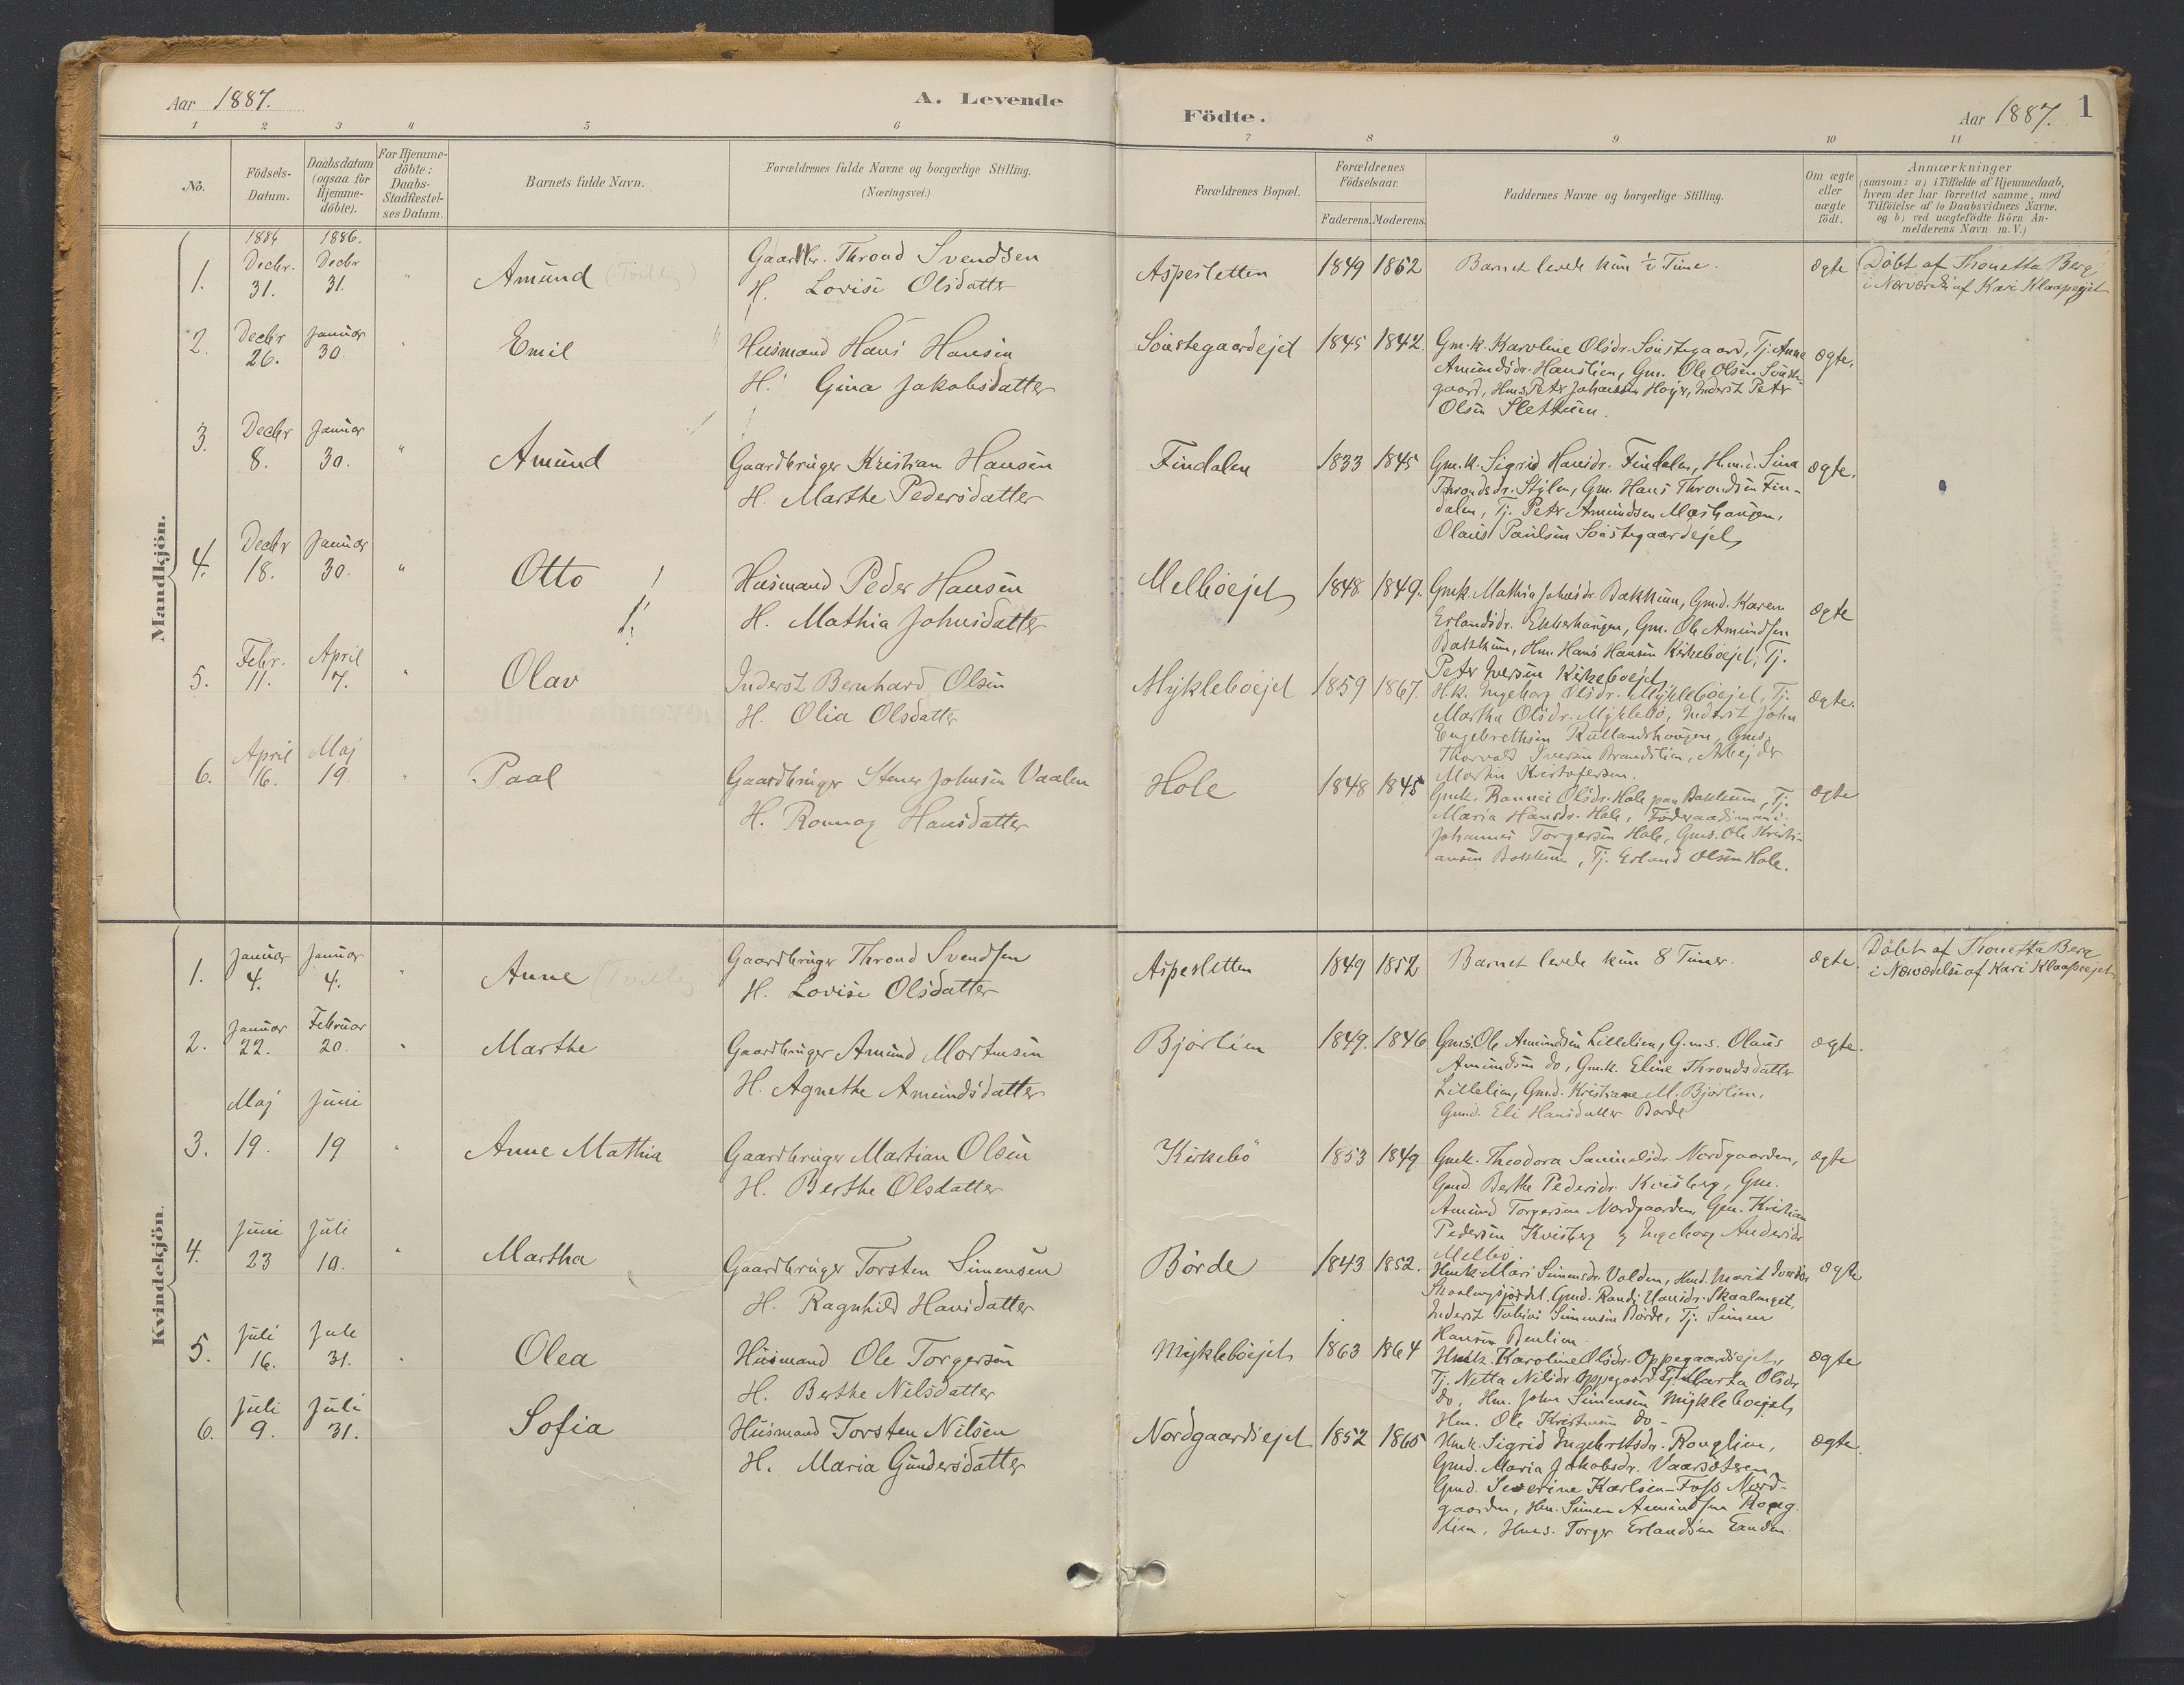 Aar 1887.
A. Levende
Födte.
Aar 1887.
1
1 2 3 4 5 6 7 8 9 10 11
No.
Födsels-
Datum.
Daabsdatum
(ogsaa for
Hjemme-
döbte).
For Hjemme-
döbte:
Daabs-
Stadfæstel-
ses Datum.
Barnets fulde Navn.
Forældrenes fulde Navne og borgerlige Stilling.
(Næringsvei.)
Forældrenes Bopæl.
Forældrenes
Födselsaar.
Faderens. Moderens.
Faddernes Navne og borgerlige Stilling.
Om ægte
eller
uægte
födt.
Anmærkninger
(saasom: a) i Tilfælde af Hjemmedaab,
hvem der har forrettet samme, med
Tilföielse af to Daabsvidners Navne.
og b) ved uægtefödte Börn An-
melderens Navn m. V.)
Mandkjön.
1.
1886
Decbr.
31.
1886.
Decbr
31.
"
Amund (Tvilling
Gaardbr. Thrond Svendsen
H. Lovise Olsdatter
Aspesletten
1849 1852
Barnet levede kun 1/2 Time.
ægte
Döbt af Thonetta Berg
i Nærværelse af Kari Klaapeejet
2.
Decbr
26.
Januar
30.
"
Emil
Husmand Hans Hansen
H. Gina Jakobsdatter
Sönstegaardejet
1845 1842
Gm.k. Karoline Olsdr. Sönstegaard, Tj. Anne
Amundsdr. Hanslien, Gm. Ole Olsen Sönste-
gaard, Hms. Peter Johansen Høyer, Inderst Peter
Olsen Slettum.
ægte.
3.
Decbr
8.
Januar
30.
"
Amund
Gaardbruger Kristian Hansen
H. Marthe Pedersdatter
Findalen
1833 1845
Gm.k. Sigrid Hansdr. Findalen, H.m.d. Sina
Throndsdr. Stylen, Gm. Hans Throndsen Fin-
dalen, Tj. Peter Amundsen Moshaugen,
Olaus Paulsen Sönstegaardejet
ægte.
4.
Decbr
18.
Januar
30.
"
Otto
Husmand Peder Hansen
H. Mathia Johnsdatter
Melbøejet
1848 1849.
Gmk. Mathia Johnsdr. Bakkum, Gmd. Karen
Erlandsdr. Ekkerhaugen, Gm. Ole Amundsen
Bakkum, Hm. Hans Hansen Kirkebøejet, Tj.
Peter Iversen Kirkebøejet
ægte
5.
Febr.
11.
April
7.
"
Olav
Inderst Bernhard Olsen
H. Olia Olsdatter
Myklebøejet
1859 1867.
H.k. Ingeborg Olsdr. Myklebøejet, Tj.
Martha Olsdr. Myklebø, Inderst John
Engebrethsen Rullandshaugen, Gms.
Thorvald Iversen Brandslien, Arbejder
Martin Kristofersen.
ægte.
6.
April
16.
Maj
19
"
Paal
Gaardbruger Stener Johnsen Vaalen
H. Rønnog Hansdatter
Hole
1848 1845
Gmk. Rannei Olsdr. Hole paa Bakkum, Tj.
Maria Hansdr. Hole, Føderaadsmand
Johannes Torgersen Hole, Gms. Ole Kristi-
ansen Bakkum, Tj. Erland Olsen Hole.
ægte
Kvindekjön.
1.
Januar
4.
Januar
4.
"
Anne (Tvilling
Gaardbruger Thrond Svendsen
H. Lovise Olsdatter
Aspesletten
1849 1852
Barnet levede kun 8 Timer.
ægte.
Döbt af Thonetta Berg
i Nærværelse af Kari Klaapeejet
2.
Januar
22.
Februar
20.
"
Marthe
Gaardbruger Amund Mortensen
H. Agnethe Amundsdatter
Bjørlien
1849. 1846
Gms. Ole Amundsen Lillelien, G.m.s. Olaus
Amundsen do, Gm.k. Eline Throndsdatter
Lillelien, Gmd. Kristiane M. Bjørlien,
Gmd. Eli Hansdatter Børde
ægte.
3.
Maj
19.
Juni
19
"
Anne Mathia
Gaardbruger Martian Olsen
H. Berthe Olsdatter
Kirkebö
1853 1849
Gmk. Theodora Samuelsdr. Nordgaarden,
Gmd Berthe Pedersdr. Kvisberg, Gm.
Amund Torgersen Nordgaarden, Gm. Kristian
Pedersen Kvisberg og Ingeborg Andersdr
Melbø.
ægte
4.
Juni
23
Juli
10.
"
Martha
Gaardbruger Torsten Simensen
H. Ragnhild Hansdatter
Børde
1843 1852.
Hmk. Mari Simensdr. Volden, Hmd. Marit Iversdr
Skaalengsjordet. Gmd. Randi Hansdr. Skaalenget,
Inderst Tobias Simensen Börde, Tj. Simen
Hansen Benlien.
ægte
5.
Juli
16.
Juli
31.
"
Olea
Husmand Ole Torgersen
H. Berthe Nilsdatter
Myklebøejet
1863 1864
Hmk. Karoline Olsdr. Oppegaardsejet,
Tj. Netta Nilsdr. Oppegaard, Tj. Marta Olsdr
do, Hm. John Simensen Myklebøejet,
Hm. Ole Kristensen do -
ægte
6.
Juli
9.
Juli
31.
Sofia
Husmand Torsten Nilsen
H. Maria Gundersdatter
Nordgaardsejet
1852 1865
Hmk. Sigrid Ingebretsdr. Rouglien,
Gmd. Maria Jakobsdr. Vaarsætren,
Gmd. Severine Karlsen-Foss Nord-
gaarden, Hm. Simen Amundsen Roug-
lien, Hms. Torger Erlandsen
ægte.